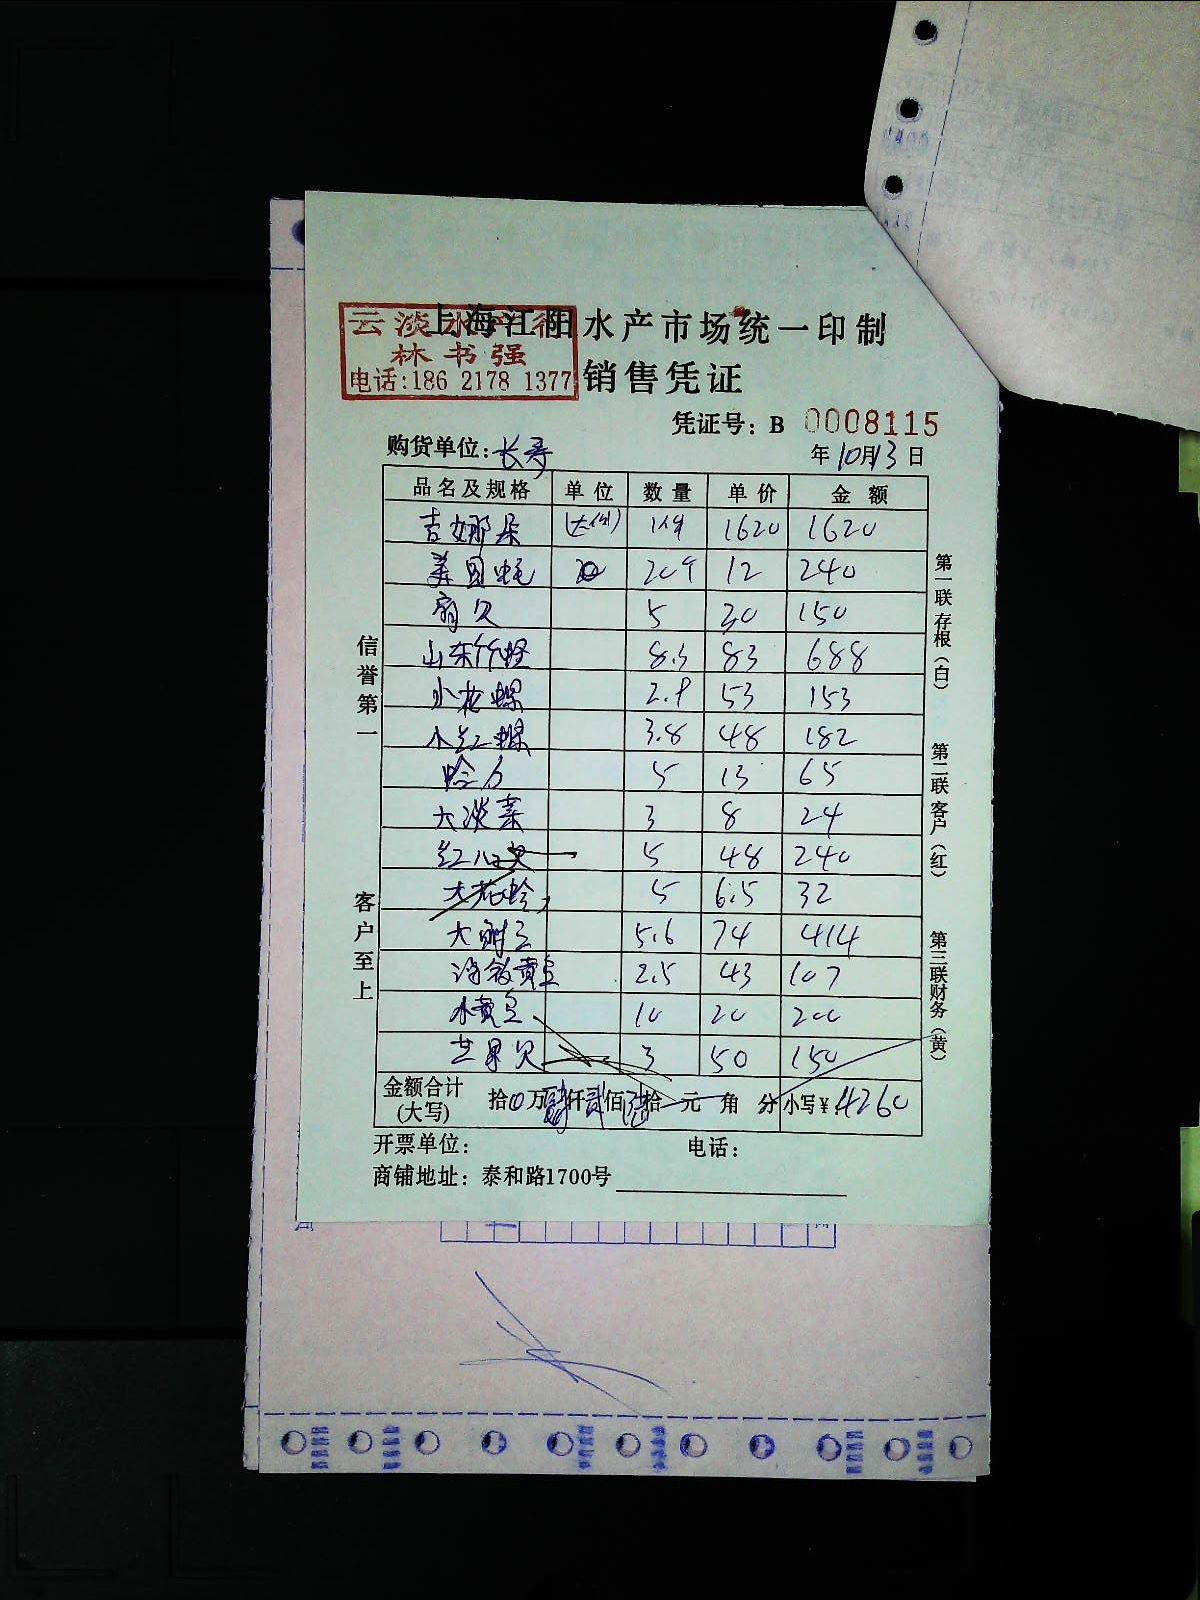 云淡水产行
林书强
电话:186 2178 1377
上海江阳水产市场统一印制
销售凭证
凭证号: B 0008115
购货单位: 长寿
年 10月13日
品名及规格 单位 数量 单价 金额
吉娜朵 1620 1620
美国蚝 20 12 240
扇贝 5 30 150
山东竹蛏 8.3 83 688
小花螺 2.9 53 153
小红螺 3.8 48 182
蛤 5 13 65
大淡菜 3 8 24
红 5 48 240
大花蛤 5 6.5 32
大 5.6 74 414
黄 2.5 43 107
小黄 10 20 200
芒果贝 3 50 150
金额合计 (大写) 拾0万肆仟贰佰陆拾元角分 小写¥:4260
开票单位: 电话:
商铺地址: 泰和路1700号
信誉第一
客户至上
第一联存根(白)
第二联客户(红)
第三联财务(黄)